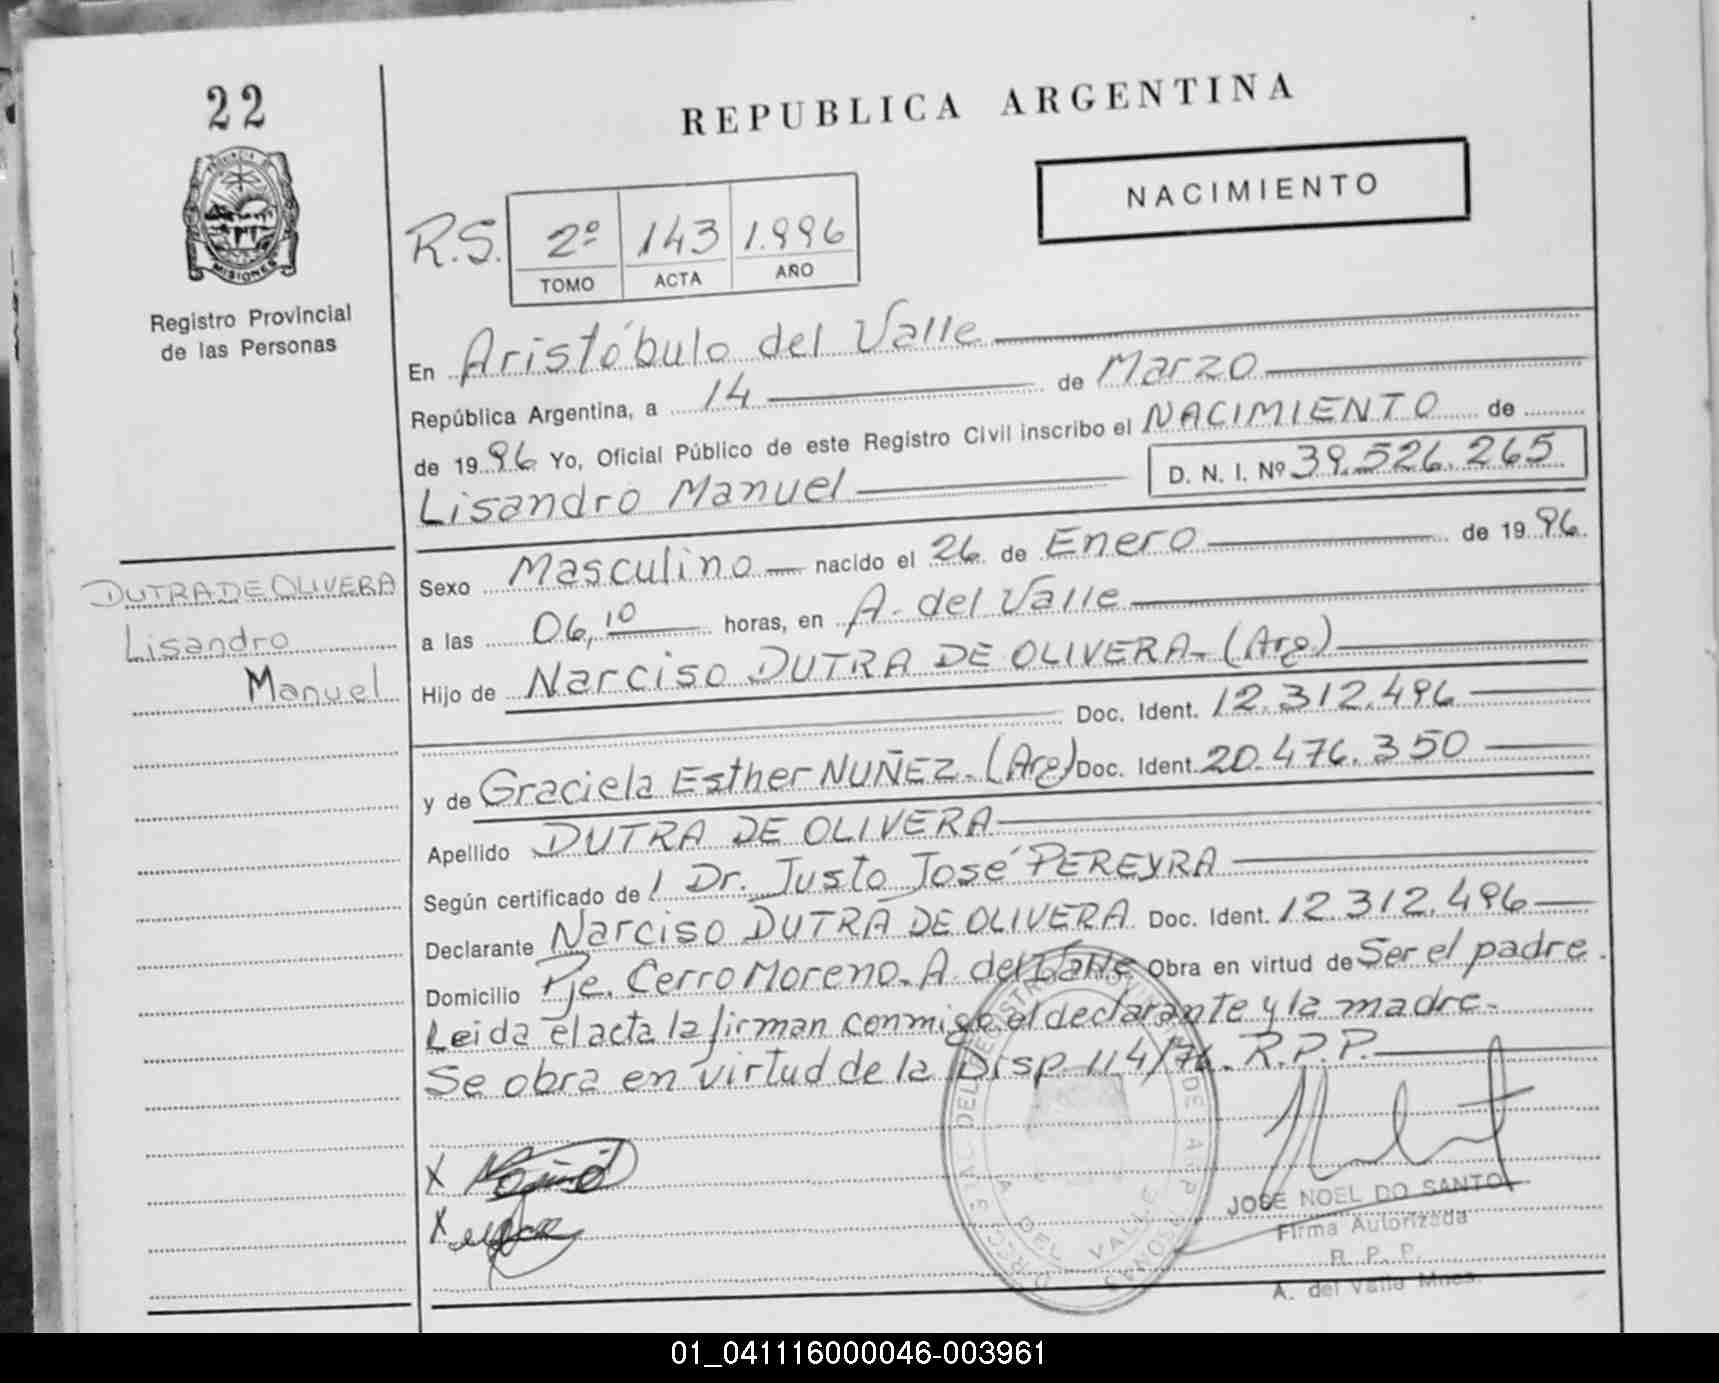 22
REPUBLICA ARGENTINA
NACIMIENTO
PROVINCIA DE
MISIONES
Registro Provincial
de las Personas
R.S.
2º 143 1.996
TOMO ACTA AÑO
En Aristóbulo del Valle
República Argentina, a 14 de Marzo
de 19 96 Yo, Oficial Público de este Registro Civil inscribo el NACIMIENTO de
Lisandro Manuel D. N. I. Nº 39.526.265
DUTRA DE OLIVERA
Lisandro
Manuel
Sexo Masculino nacido el 26 de Enero de 19 96.
a las 06,10 horas, en A. del Valle
Hijo de Narciso DUTRA DE OLIVERA.- (Arg.)
Doc. Ident. 12.312.496
y de Graciela Esther NUÑEZ.- (Arg) Doc. Ident. 20.476.350
Apellido DUTRA DE OLIVERA
Según certificado de Dr. Justo José PEREYRA
Declarante Narciso DUTRA DE OLIVERA Doc. Ident. 12.312.496
Domicilio Pje. Cerro Moreno.- A. del Valle Obra en virtud de Ser el padre.
Leida el acta la firman conmigo el declarante y la madre.-
Se obra en virtud de la Disp. 114/76. R.P.P.
X
X
A. DEL VALLE
JOSE NOEL DO SANTO
Firma Autorizada
R. P. P.
A. del Valle Mnes.
01_041116000046-003961